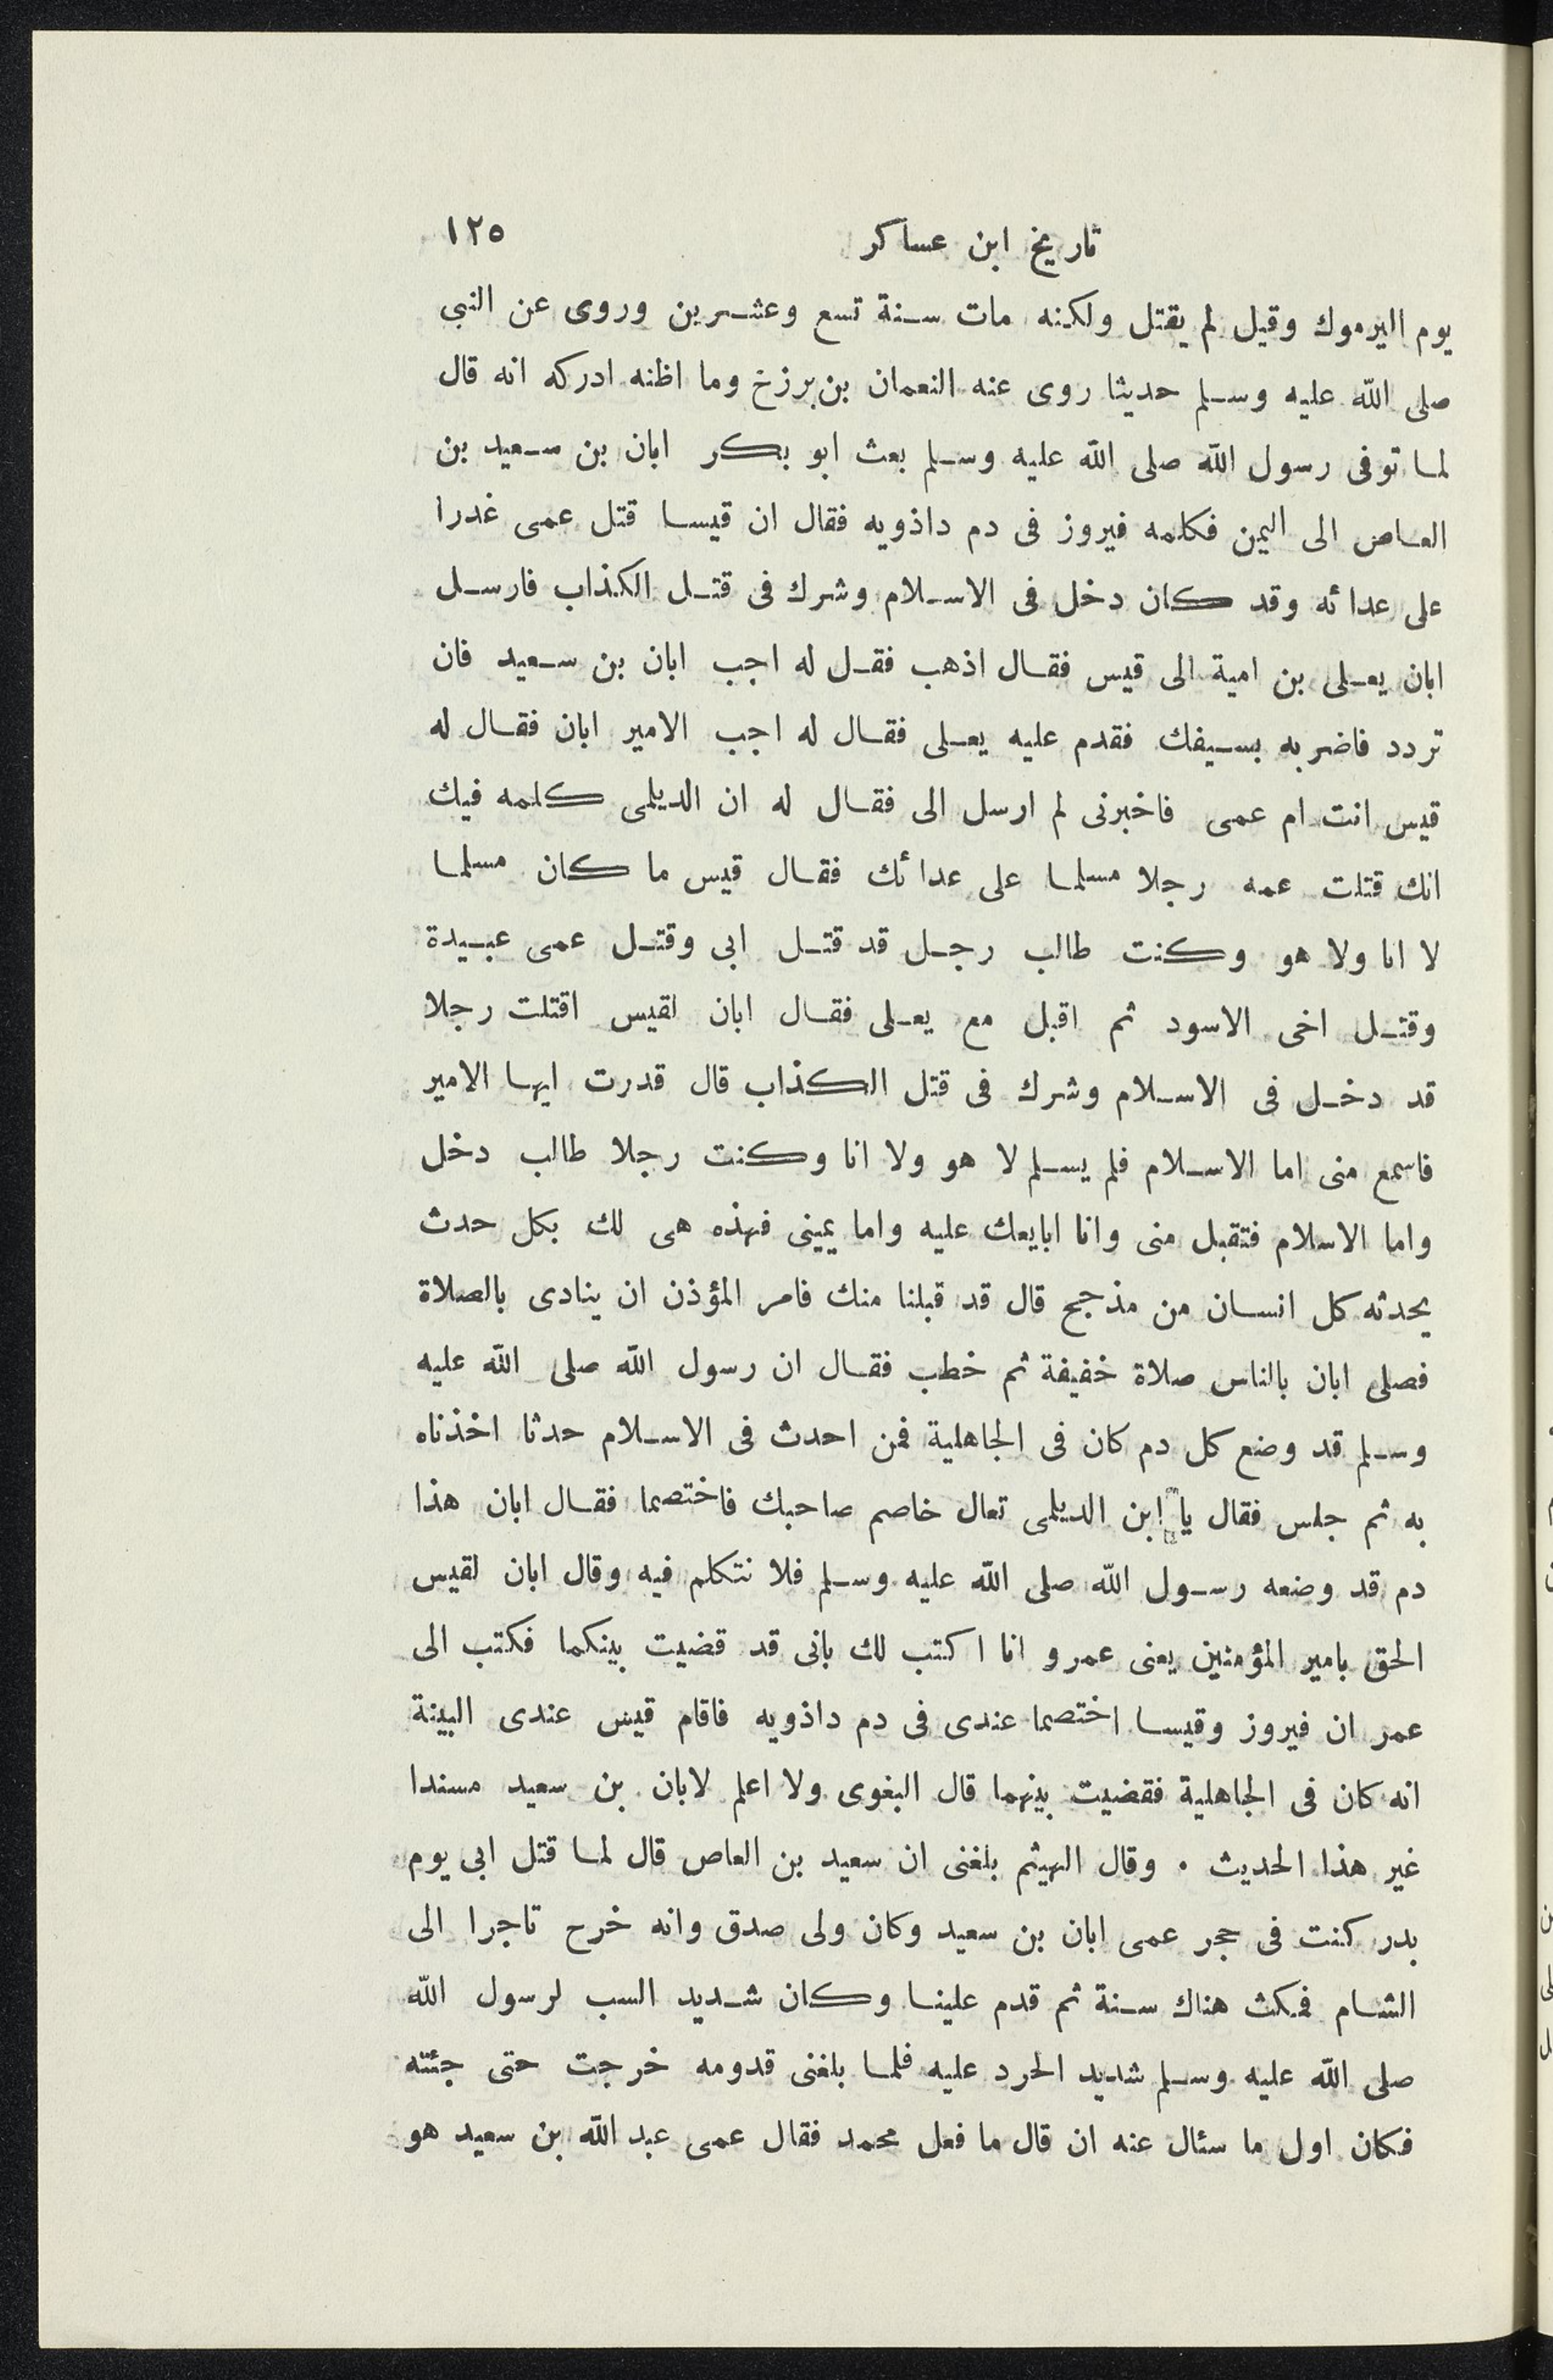 تاريخ ابن عساكر ١٢٥
يوم اليرموك وقيل لم يقتل ولكنه مات سنة تسع وعشرين وروى عن النبى
صلى الله عليه وسلم حديثا روى عنه النعمان بن برزخ وما اظنه ادركه انه قال
لما توفى رسول الله صلى الله عليه وسلم بعث ابو بكر ابان بن سعيد بن
العاص الى اليمن فكلمه فيروز فى دم داذويه فقال ان قيسا قتل عمى غدرا
على عدائه وقد كان دخل فى الاسلام وشرك فى قتل الكذاب فارسل
ابان يعلى بن امية الى قيس فقال اذهب فقل له اجب ابان بن سعيد فان
تردد فاضربه بسيفك فقدم عليه يعلى فقال له اجب الامير ابان فقال له
قيس انت ام عمى فاخبرنى لم ارسل الى فقال له ان الديلمى كلمه فيك
انك قتلت عمه رجلا مسلما على عدائك فقال قيس ما كان مسلما
لا انا ولا هو وكنت طالب رجل قد قتل ابى وقتل عمى عبيدة
وقتل اخى الاسود ثم اقبل مع يعلى فقال ابان لقيس اقتلت رجلا
قد دخل فى الاسلام وشرك فى قتل الكذاب قال قدرت ايها الامير
فاسمع منى اما الاسلام فلم يسلم لا هو ولا انا وكنت رجلا طالب دخل
واما الاسلام فتقبل منى وانا ابايعك عليه واما يمينى فهذه هى لك بكل حدث
يحدثه كل انسان من مذحج قال قد قبلنا منك فامر المؤذن ان ينادى بالصلاة
فصلى ابان بالناس صلاة خفيفة ثم خطب فقال ان رسول الله صلى الله عليه
وسلم قد وضع كل دم كان فى الجاهلية فمن احدث فى الاسلام حدثا اخذناه
به ثم جلس فقال يا ابن الديلمى تعال خاصم صاحبك فاختصما فقال ابان هذا
دم قد وضعه رسول الله صلى الله عليه وسلم فلا نتكلم فيه وقال ابان لقيس
الحق بامير المؤمنين يعنى عمر و انا اكتب لك بانى قد قضيت بينكما فكتب الى
عمر ان فيروز وقيسا اختصما عندى فى دم داذويه فاقام قيس عندى البينة
انه كان فى الجاهلية فقضيت بينهما قال البغوى ولا اعلم لابان بن سعيد مسندا
غير هذا الحديث . وقال الهيثم بلغنى ان سعيد بن العاص قال لما قتل ابى يوم
بدر كنت فى حجر عمى ابان بن سعيد وكان ولى صدق وانه خرح تاجرا الى
الشام فمكث هناك سنة ثم قدم علينا وكان شديد السب لرسول الله
صلى الله عليه وسلم شديد الحرد عليه فلما بلغنى قدومه خرجت حتى جئته
فكان اول ما سئال عنه ان قال ما فعل محمد فقال عمى عبد الله بن سعيد هو